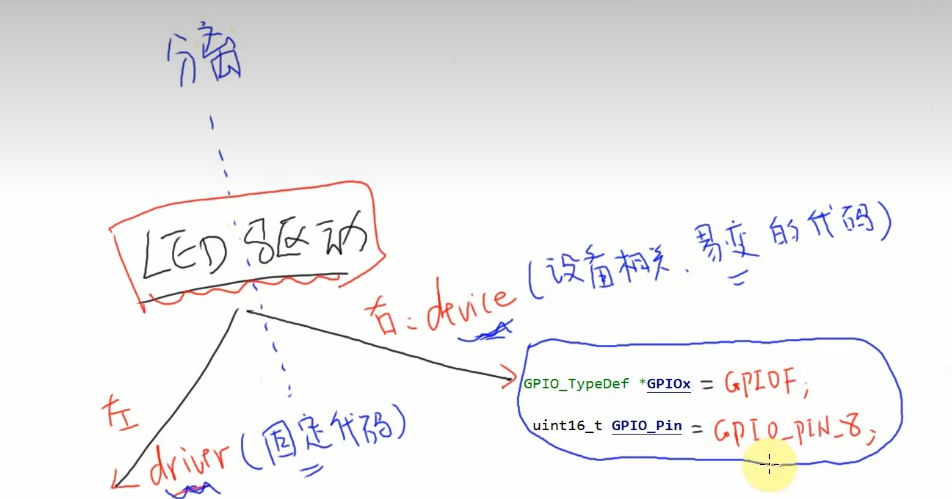 分离
LED驱动
右: device (设备相关、易变的代码)
GPIO_TypeDef *GPIOx = GPIOF;
uint16_t GPIO_Pin = GPIO_PIN_8;
左
driver (固定代码)